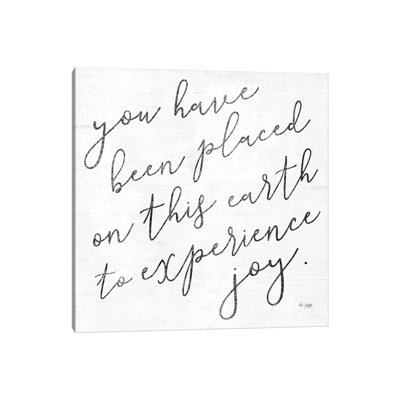 you have
been placed
on this earth
to experience
joy.